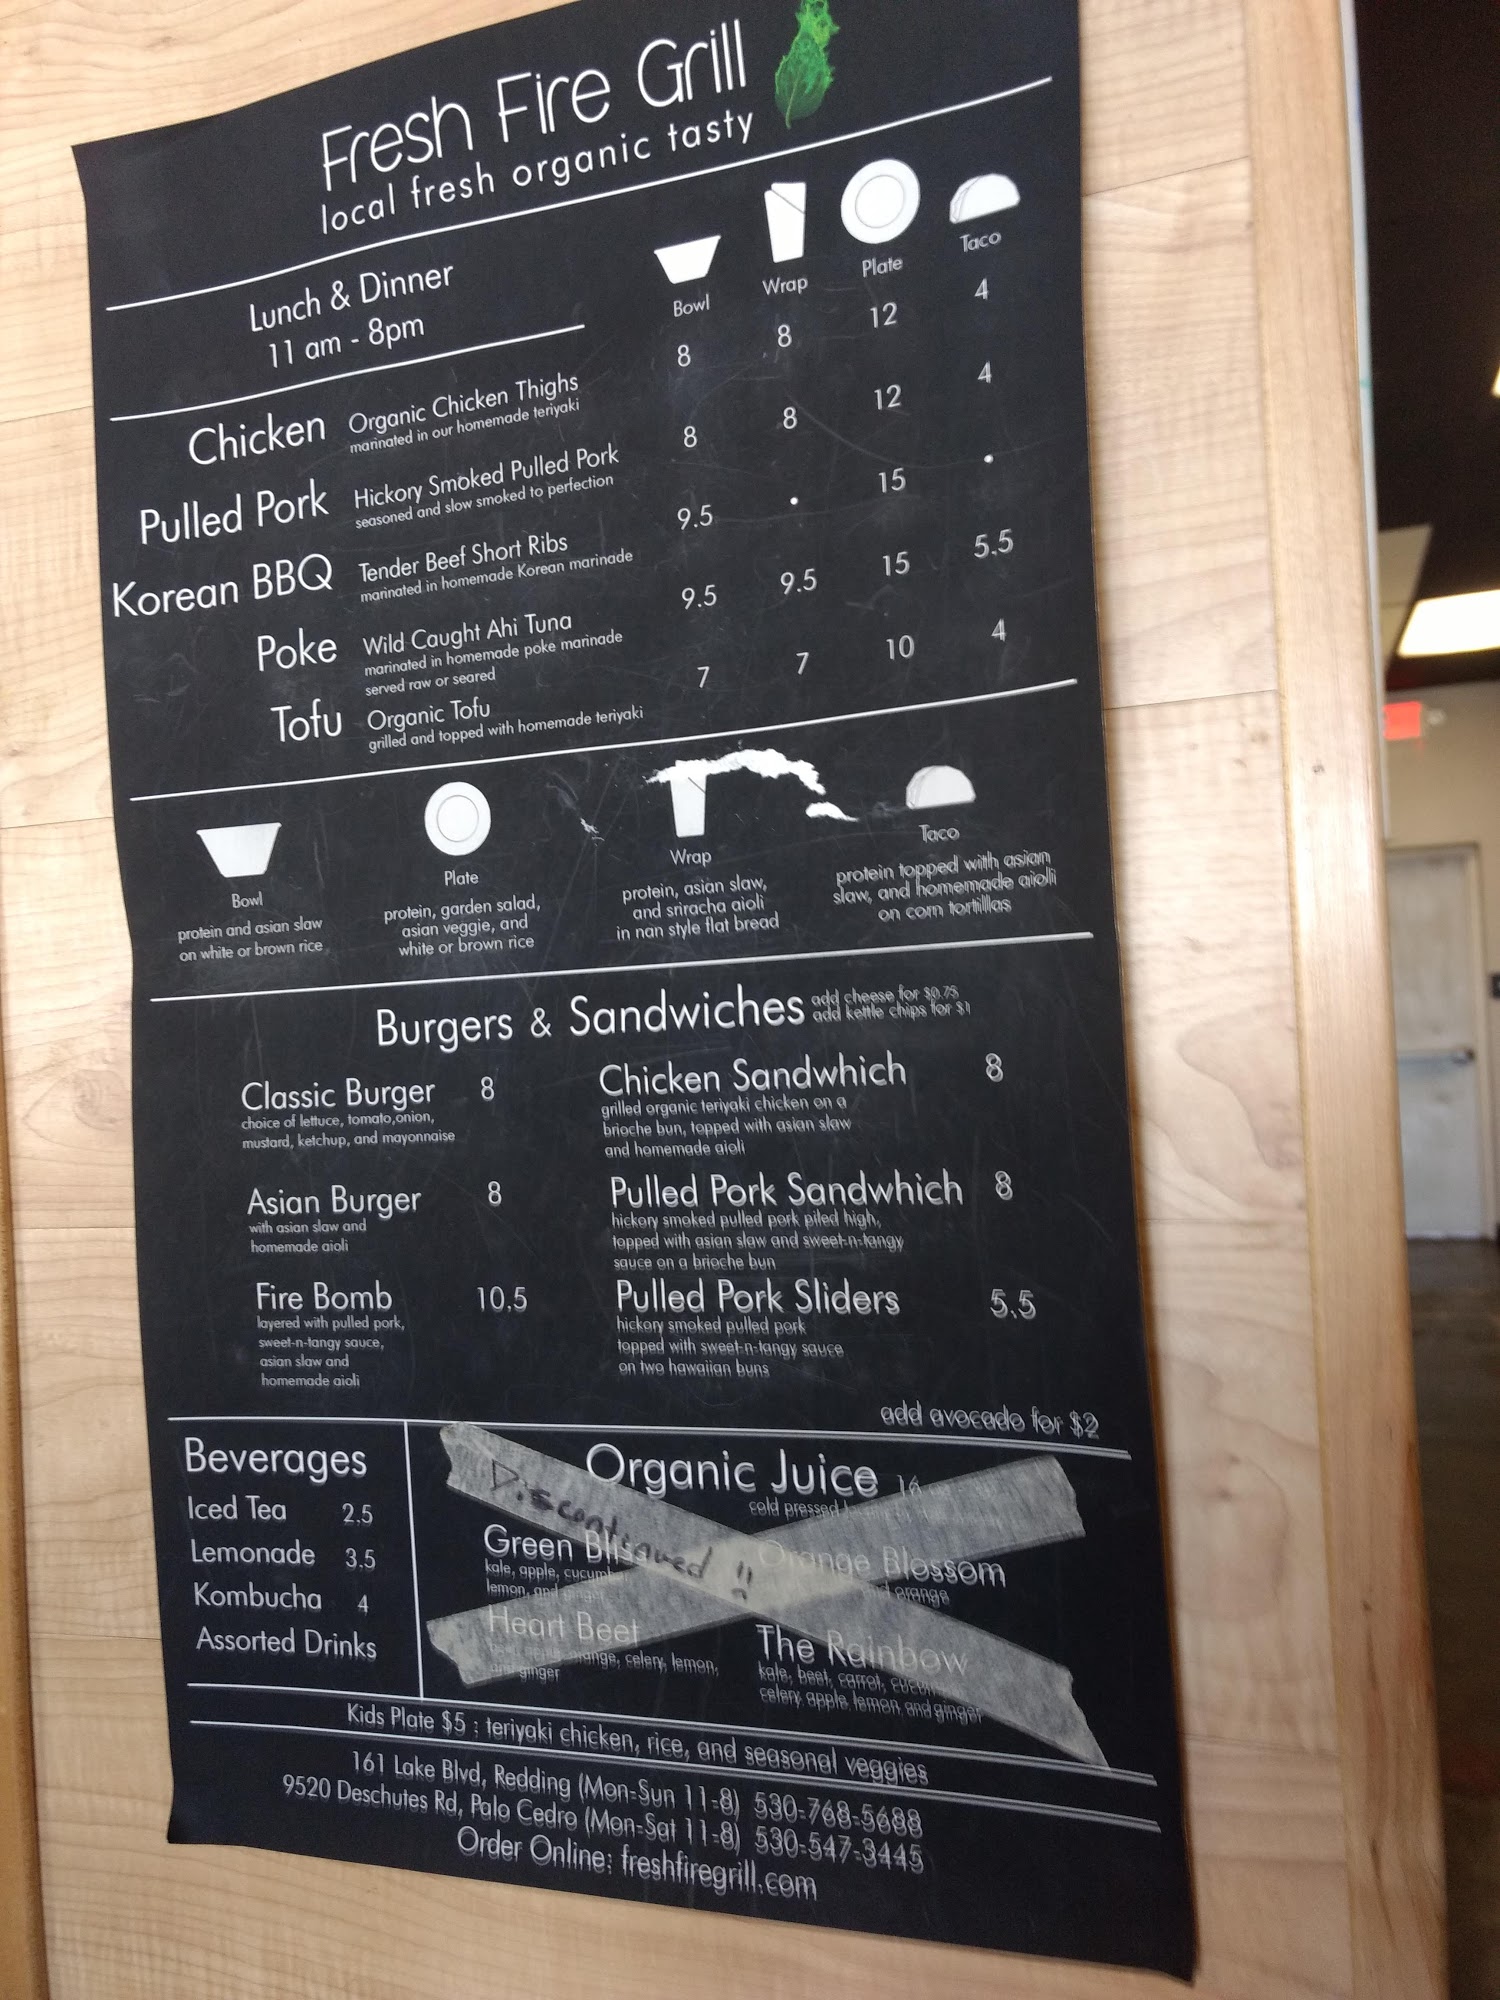 Fresh Fire Grill
local fresh organic tasty
Lunch & Dinner
11 am - 8pm
Bowl Wrap Plate Taco
Chicken Organic Chicken Thighs 8 8 12 4
marinated in our homemade teriyaki
Pulled Pork Hickory Smoked Pulled Pork 8 8 12 4
seasoned and slow smoked to perfection
Korean BBQ Tender Beef Short Ribs 9.5 • 15 •
marinated in homemade Korean marinade
Poke Wild Caught Ahi Tuna 9.5 9.5 15 5.5
marinated in homemade poke marinade
served raw or seared
Tofu Organic Tofu 7 7 10 4
grilled and topped with homemade teriyaki
Bowl
protein and asian slaw
on white or brown rice
Plate
protein, garden salad,
asian veggie, and
white or brown rice
Wrap
protein, asian slaw,
and sriracha aioli
in nan style flat bread
Taco
protein topped with asian
slaw, and homemade aioli
on corn tortillas
Burgers & Sandwiches
add cheese for $0.75
add kettle chips for $1
Classic Burger 8
choice of lettuce, tomato,onion,
mustard, ketchup, and mayonnaise
Asian Burger 8
with asian slaw and
homemade aioli
Fire Bomb 10.5
layered with pulled pork,
sweet-n-tangy sauce,
asian slaw and
homemade aioli
Chicken Sandwhich 8
grilled organic teriyaki chicken on a
brioche bun, topped with asian slaw
and homemade aioli
Pulled Pork Sandwhich 8
hickory smoked pulled pork piled high,
topped with asian slaw and sweet-n-tangy
sauce on a brioche bun
Pulled Pork Sliders 5.5
hickory smoked pulled pork
topped with sweet-n-tangy sauce
on two hawaiian buns
add avocado for $2
Beverages
Iced Tea 2.5
Lemonade 3.5
Kombucha 4
Assorted Drinks
Organic Juice 16
cold pressed
Discontinued !!
Green Bliss
kale, apple,
lemon, and ginger
Orange Blossom
orange
Heart Beet
celery, lemon,
ginger
The Rainbow
kale, beet, carrot,
celery, apple, lemon and ginger
Kids Plate $5 : teriyaki chicken, rice, and seasonal veggies
161 Lake Blvd, Redding (Mon-Sun 11-8) 530-768-5688
9520 Deschutes Rd, Palo Cedro (Mon-Sat 11-8) 530-547-3445
Order Online: freshfiregrill.com